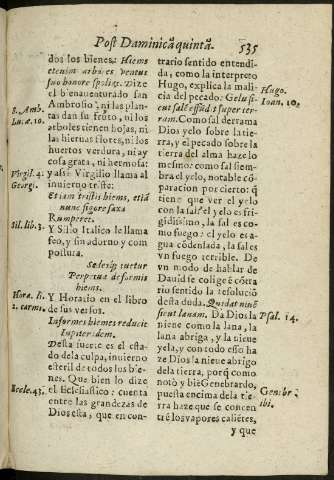 Post Dominicã quintã. 535
dos los bienes: Hiems
etenim arbores ventus
suo honore spoliat. Dize
el bienauenturado san
Ambrosio: ni las plan-
tas dan su fruto, ni los
arboles tienen hojas, ni
las hieruas flores, ni los
huertos verdura, ni ay
cosa grata, ni hermosa:
y assi Virgilio llama al
inuierno triste:
Etiam tristis hiems, etiã
nunc frigore saxa
Rumperet.
Y Silio Italico le llama
feo, y sin adorno y com
postura.
Sed
Perpetua deformis
hiems.
Y Horatio en el libro
de sus versos.
Informes hiemes reducit
Iupiter idem.
Desta suerte es el esta-
do dela culpa, inuierno
esteril de todos los bie-
nes. Que bien lo dize
el Ecclesiastico: cuenta
entre las grandezas de
Dios esta, que en con-
S. Amb.
Lu. æ. 10.
Virgil. 4.
Georgi.
Sil. lib. 3.
Hora. li.
2. carmi.
Eccle. 43.
trario sentido entendi-
da, como la interpreto
Hugo, explica la mali-
cia del pecado. Gelu si-
cut salé effũdit super ter-
ram. Como sal derrama
Dios yelo sobre la tie-
rra, y el pecado sobre la
tierra del alma haze lo
mesmo: como sal siem-
bra el yelo, notable cõ-
paracion por cierto: q̃
tiene que ver el yelo
con la sal? el yelo es fri-
gidissimo, la sal es co-
mo fuego: el yelo es a-
gua cõdenlada, la sal es
vn fuego terrible. De
vn modo de hablar de
Dauid se colige ẽ cõtra
rio sentido la resoluciõ
desta duda. Qui dat niuẽ
sicut lanam. Da Dios la
nieue como la lana, la
lana abriga, y la nieue
yela, y con todo esso ha
ze Dios la nieue abrigo
dela tierra, porq̃ como
notò y biẽ Genebrardo,
puesta encima dela tie-
rra haze que se concen
trẽ los vapores caliẽtes,
y que
Hugo.
Ioan. 10.
Psal. 14.
Genibr.
ibi.